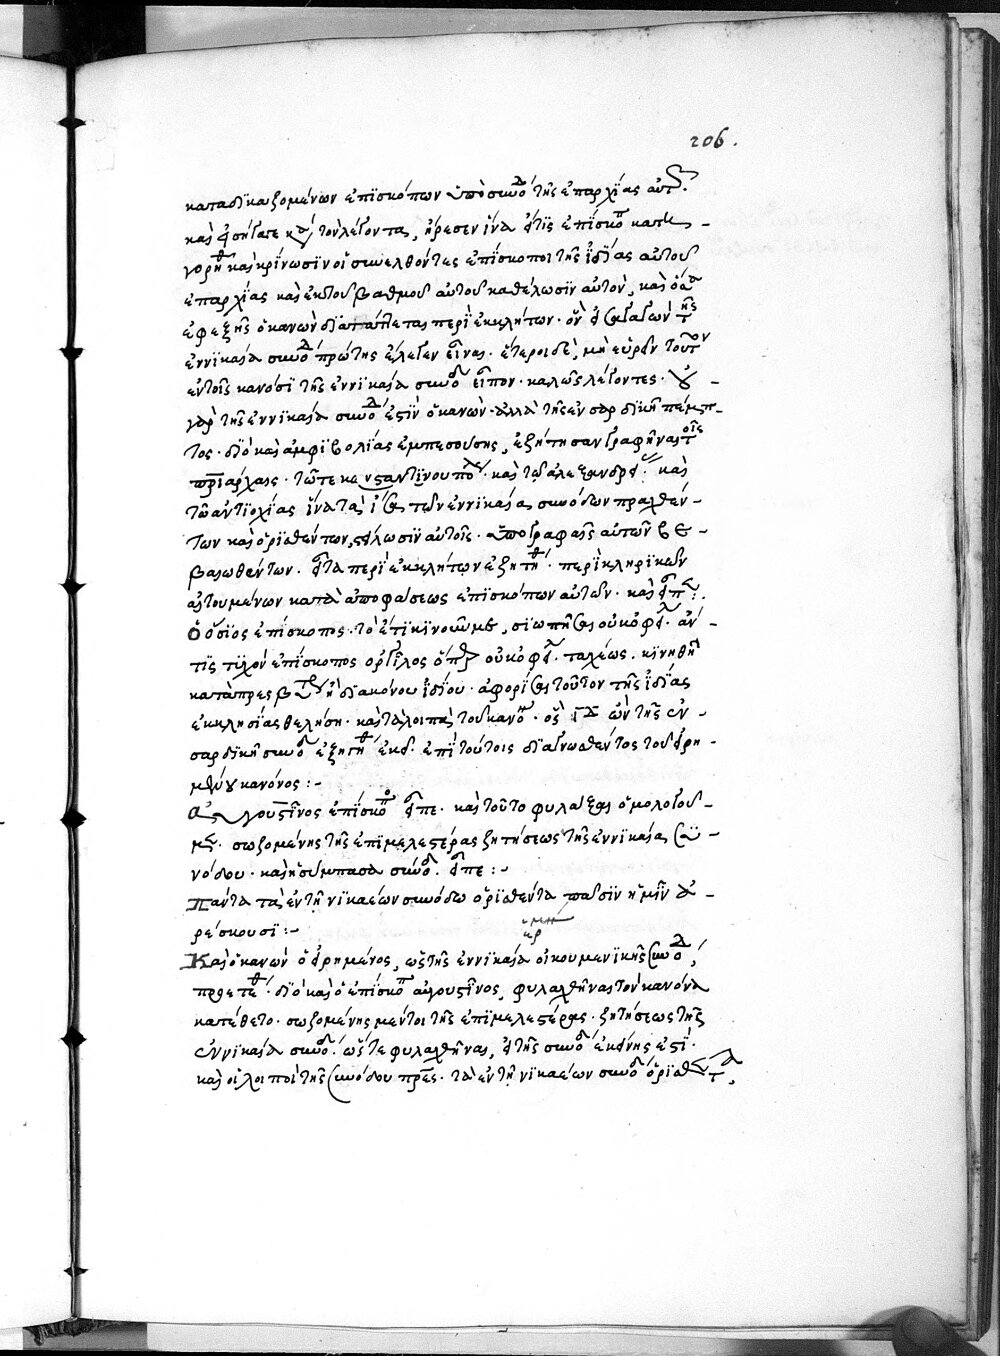 206.
καταδικαζομένων ἐπισκόπων ὑπὸ συνόδ τῆς ἐπαρχίας αὐτ.
καὶ τὸν λέγοντα, ἤρεσεν ἵνα εἴ τις ἐπίσκο κατη-
γορηθ καὶ κρίνωσιν οἱ συνελθόντες ἐπίσκοποι τῆς ἰδίας αὐτοῦ
ἐπαρχίας καὶ ἐκ τοῦ βαθμοῦ αὐτοῦ καθέλωσιν αὐτὸν, καὶ ὅσα
ἐφεξῆς ὁ κανὼν διαπλεται περὶ ἐκκλήτων. ὃν τῆς
ἐν νικαία συνόδ πρώτης ἔλεγεν εἶναι. ἕτεροι δὲ, μὴ εὑρεῖν τοῦτον
ἐν τοῖς κανόσι τῆς ἐν νικαία συνόδ εἶπον. καλῶς λέγοντες. οὐ -
γὰρ τῆς ἐν νικαία συνόδ ἐστὶν ὁ κανών. ἀλλὰ τῆς ἐν σαρδικῆ πέμπ-
τος. διὸ καὶ ἀμφιβολίας ἐμπεσούσης, ἐξήτησαν γραφῆναι τοῖς
πριάρχαις. τῶ τε κωνσταντίνουπό. καὶ τῶ ἀλεξανδρεί. καὶ
τῶ ἀντιοχίας ἵνα τὰ ἴσα τῶν ἐν νικαία συνόδων πραχθέν-
των καὶ ὁρισθέντων, στείλωσιν αὐτοῖς. ὑπογραφαῖς αὐτῶν βε-
βαιωθέντων. εἶτα περὶ ἐκκλήτων ἐξητήθ. περὶ κληρικῶν
αἰτουμένων κατὰ ἀποφάσεως ἐπισκόπων αὐτῶν. καὶ εἶπεν:
ὁ ὅσιος ἐπίσκοπος. τὸ ἔτι κινοῦν με, σιωπῆσαι οὐκ ὀφείλ. ἄν -
τις τυχὸν ἐπίσκοπος ὀργίλος ὅπερ οὐκ ὀφείλ. ταχέως. κινηθῆ
κατὰ πρεσβτέρου ἢ διακόνου ἰδίου. ἀφορίσαι τοῦτον τῆς ἰδίας
ἐκκλησίας θελήση. καὶ τὰ λοιπὰ τοῦ κανό. ὃς ιδ ὢν τῆς ἐν -
σαρδικῆ συνόδ ἐξητήθ ἐκεῖ. ἐπὶ τούτοις διαγνωσθέντος τοῦ εἰρη-
μένου κανόνος:-
Αὐγουστῖνος ἐπίσκοπο εἶπε. καὶ τοῦτο φυλάξαι ὁμολογοῦ-
με. σωζομένης τῆς ἐπιμελεστέρας ζητήσεως τῆς ἐν νικαία συ -
νόδου. καὶ ἡ σύμπασα σύνοδ. εἶπε:-
Πάντα τὰ ἐν τῆ νικαέων συνόδω ὁρισθέντα πᾶσιν ἡμῖν ἀ -
ρέσκουσι:-
ἑρμη
Καὶ ὁ κανὼν ὁ εἰρημένος, ὡς τῆς ἐν νικαία οἰκουμενικῆς συνόδ,
προετέθ. διὸ καὶ ὁ ἐπίσκοπ αὐγουστῖνος, φυλαχθῆναι τὸν κανόνα
κατέθετο. σωζομένης μέντοι τῆς ἐπιμελεστέρας. ζητήσεως τῆς
ἐν νικαία συνόδ. ὥστε φυλαχθῆναι, εἰ τῆς συνόδ ἐκείνης ἐστί.
καὶ οἱ λοιποὶ τῆς συνόδου πρες. τὰ ἐν τῆ νικαέων συνόδ ὁρισθέντα,